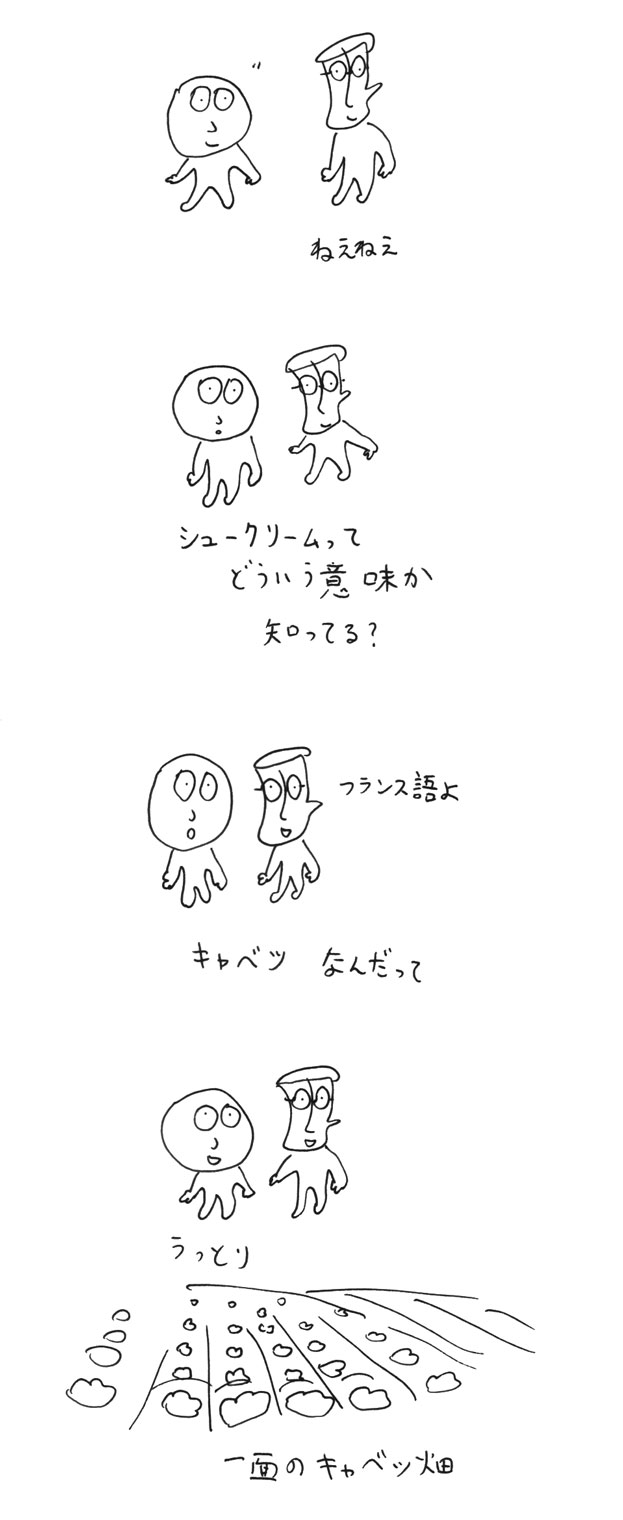 ねえねえ
シュークリームって
どういう意味か
知ってる?
フランス語よ
キャベツ なんだって
うっとり
一面のキャベツ畑